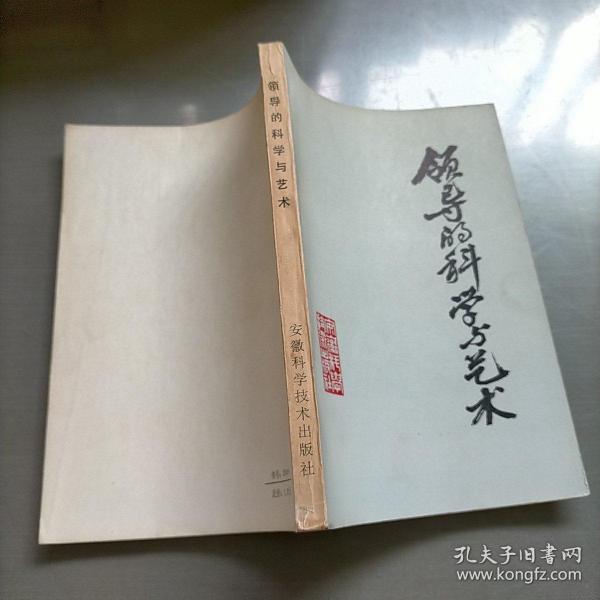 领导的科学与艺术
安徽科学技术出版社
领导的科学与艺术
孔夫子旧书网
www.kongfz.com